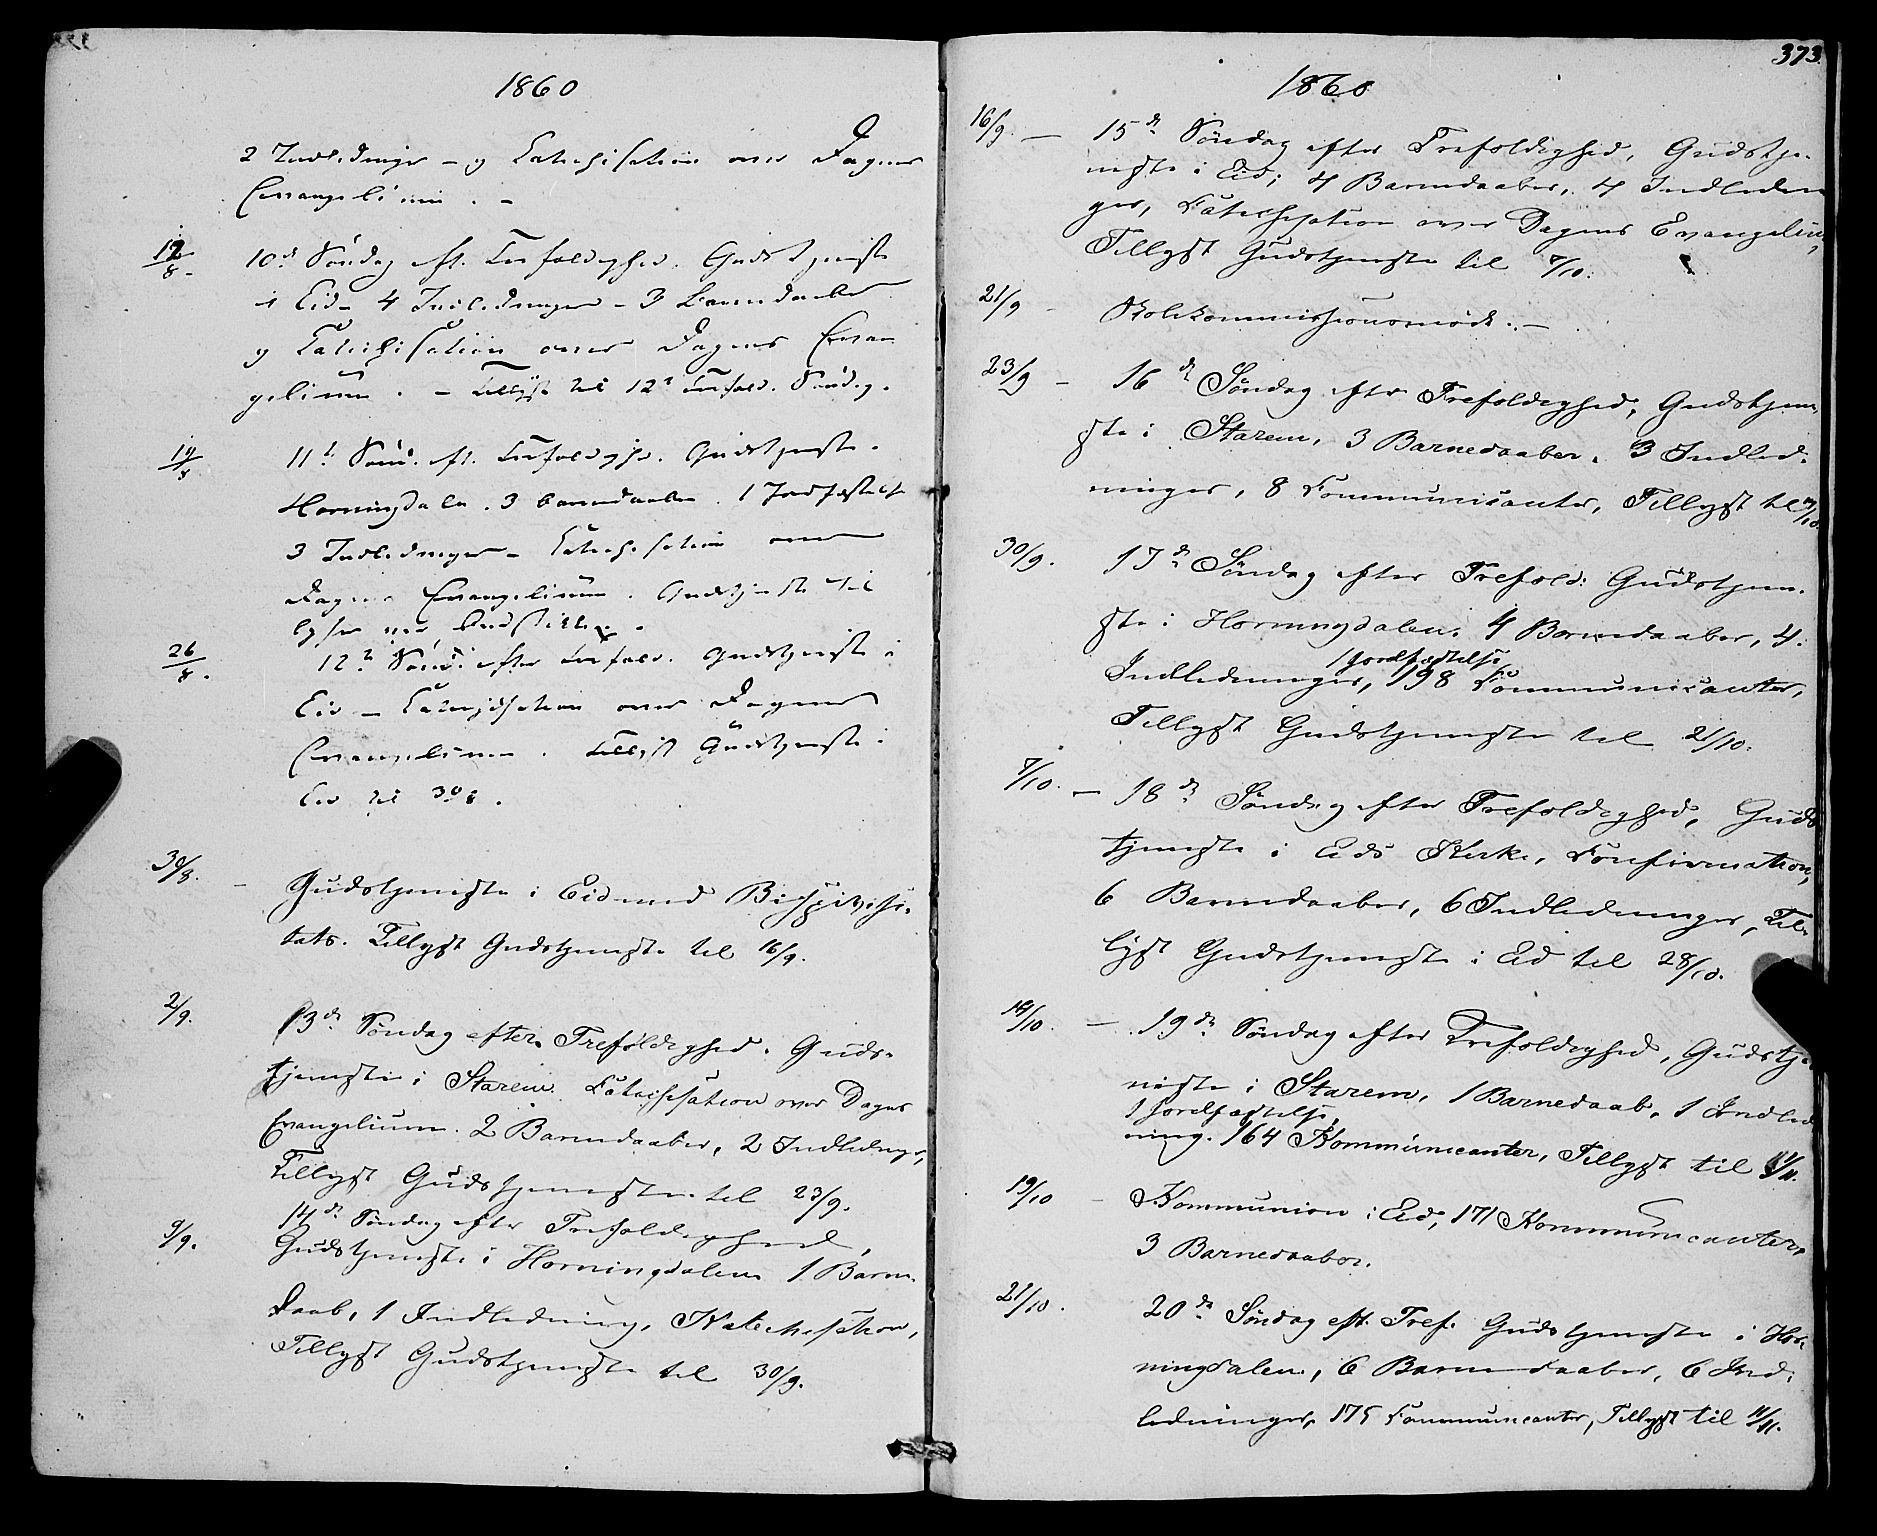 1860
2 Indledninger – og Catechisation over Dagens
Evangelium. –
12/8. 10de Søndag eft. Trefoldighed. Gudstjeneste
i Eid – 4 Indledninger – 3 Barnedaaber
og Catechisation over Dagens Evan
gelium. – Tillyst til 12te Trefold. Søndag.
19/8 11te Sønd. eft. Trefoldighed. Gudstjeneste.
Horningdalen. 3 barnedaaber. 1 Jordfæstelse
3 Indledninger – Catechisation over
Dagens Evangelium. Gudstjeneste til
lyses ved
26/8. 12te Sønd. efter Trefold. Gudstjeneste i
Eid – Catechisation over Dagens
Evangelium. Tillyst Gudstjeneste i
Eid til 30/8.
30/8. – Gudstjeneste i Eid med Bispevisi-
tats. Tillyst Gudstjeneste til 16/9.
2/9. 13de Søndag efter Trefoldighed. Guds-
tjeneste i Starem. Catechisation over Dagens
Evangelium. 2 Barnedaaber, 2 Indledninger,
Tillyst Gudstjeneste til 23/9.
14de Søndag efter Trefoldighed,
9/9. Gudstjeneste i Horningdalen 1 Barne-
daab, 1 Indledning, Katechisation,
Tillyst Gudstjeneste til 30/9.
373.
1860
16/9. – 15de Søndag efter Trefoldighed, Gudstje-
neste i Eid; 4 Barnedaaber, 4 Indlednin
ger, Catechisation over Dagens Evangelium,
Tillyst Gudstjeneste til 7/10.
21/9 – Skolekommissionsmöde. –
23/9 – 16de Søndag efter Trefoldighed, Gudstjene
ste i Starem, 3 Barnedaaber, 3 Indled-
ninger, 8 Communicanter, Tillyst til 14/10.
30/9. 17de Søndag efter Trefold: Gudstjene-
ste i Horningdalen. 4 Barnedaaber, 4
1 Jordfæstelse
Indledninger, 198 Communicanter,
Tillyst Gudstjeneste til 21/10.
7/10. – 18de Søndag efter Trefoldighed, Guds
tjeneste i Eids Kirke, Confirmation,
6 Barnedaaber, 6 Indledninger, Til-
lyst Gudstjeneste i Eid til 28/10.
14/10. – 19de Søndag efter Trefoldighed, Gudstje-
neste i Starem, 1 Barnedaab, 1 Indled
1 Jordfæstelse,
ning. 164 Kommunicanter, Tillyst til
19/10 – Kommunion i Eid, 171 Kommunicanter,
3 Barnedaaber.
21/10. 20de Søndag eft. Tref. Gudstjeneste i Hor-
ningdalen, 6 Barnedaaber, 6 Ind-
ledninger, 175 Communicanter, Tillyst til 11/11.